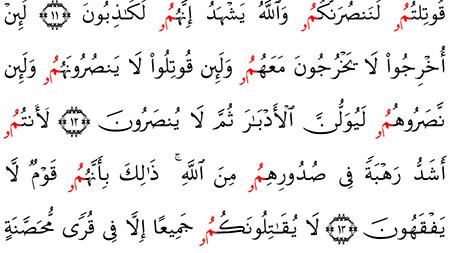 قُوتِلْتُمُۥ لَنَنصُرَنَّكُمُۥ وَٱللَّهُ يَشْهَدُ إِنَّهُمُۥ لَكَـٰذِبُونَ ﴿١١﴾ لَئِنْ
أُخْرِجُوا۟ لَا يَخْرُجُونَ مَعَهُمُۥ وَلَئِن قُوتِلُوا۟ لَا يَنصُرُونَهُمُۥ وَلَئِن
نَّصَرُوهُمُۥ لَيُوَلُّنَّ ٱلْأَدْبَـٰرَ ثُمَّ لَا يُنصَرُونَ ﴿١٢﴾ لَأَنتُمُۥ
أَشَدُّ رَهْبَةً فِى صُدُورِهِمُۥ مِنَ ٱللَّهِ ۚ ذَٰلِكَ بِأَنَّهُمُۥ قَوْمٌ لَّا
يَفْقَهُونَ ﴿١٣﴾ لَا يُقَـٰتِلُونَكُمُۥ جَمِيعًا إِلَّا فِى قُرًى مُّحَصَّنَةٍ